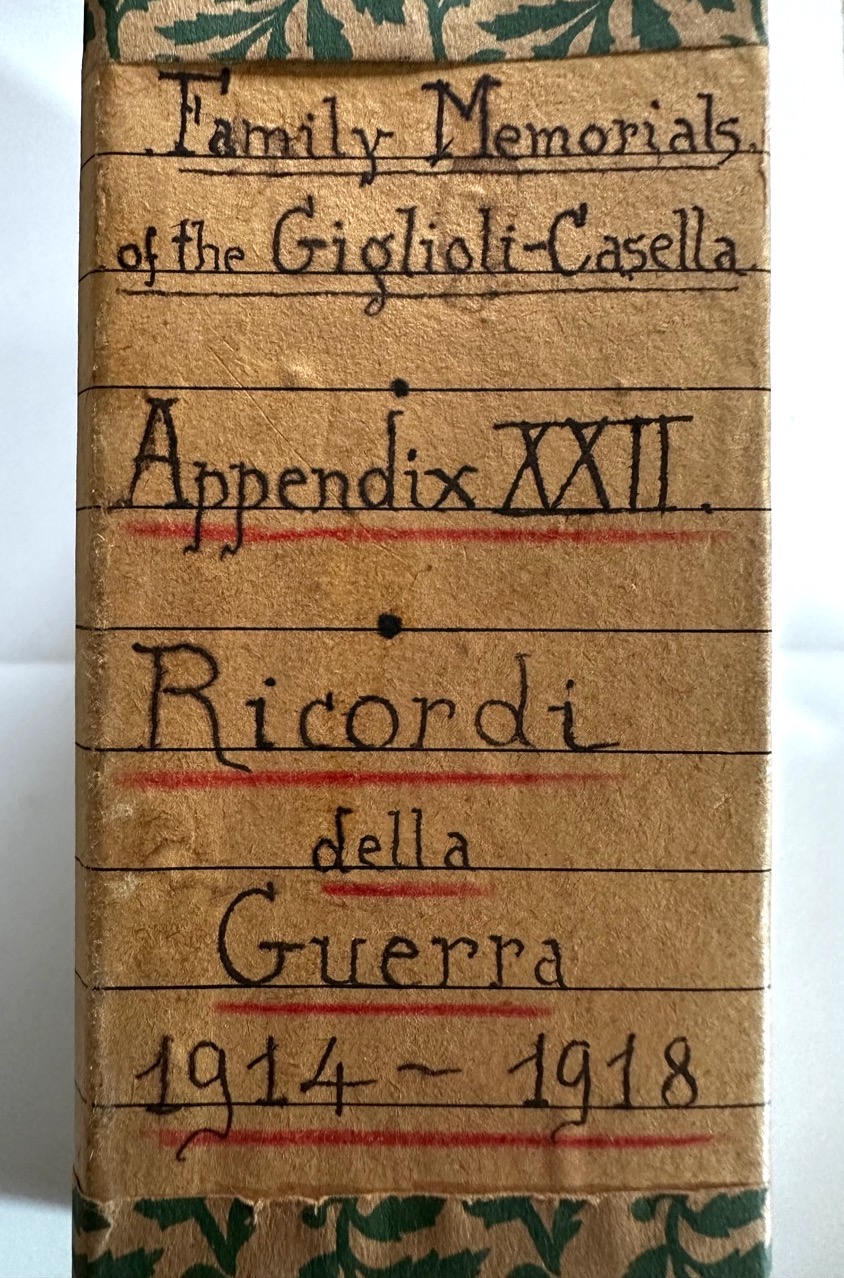 Family Memorials.
of the Giglioli-Casella
Appendix XXII.
Ricordi
della
Guerra
1914 ~ 1918